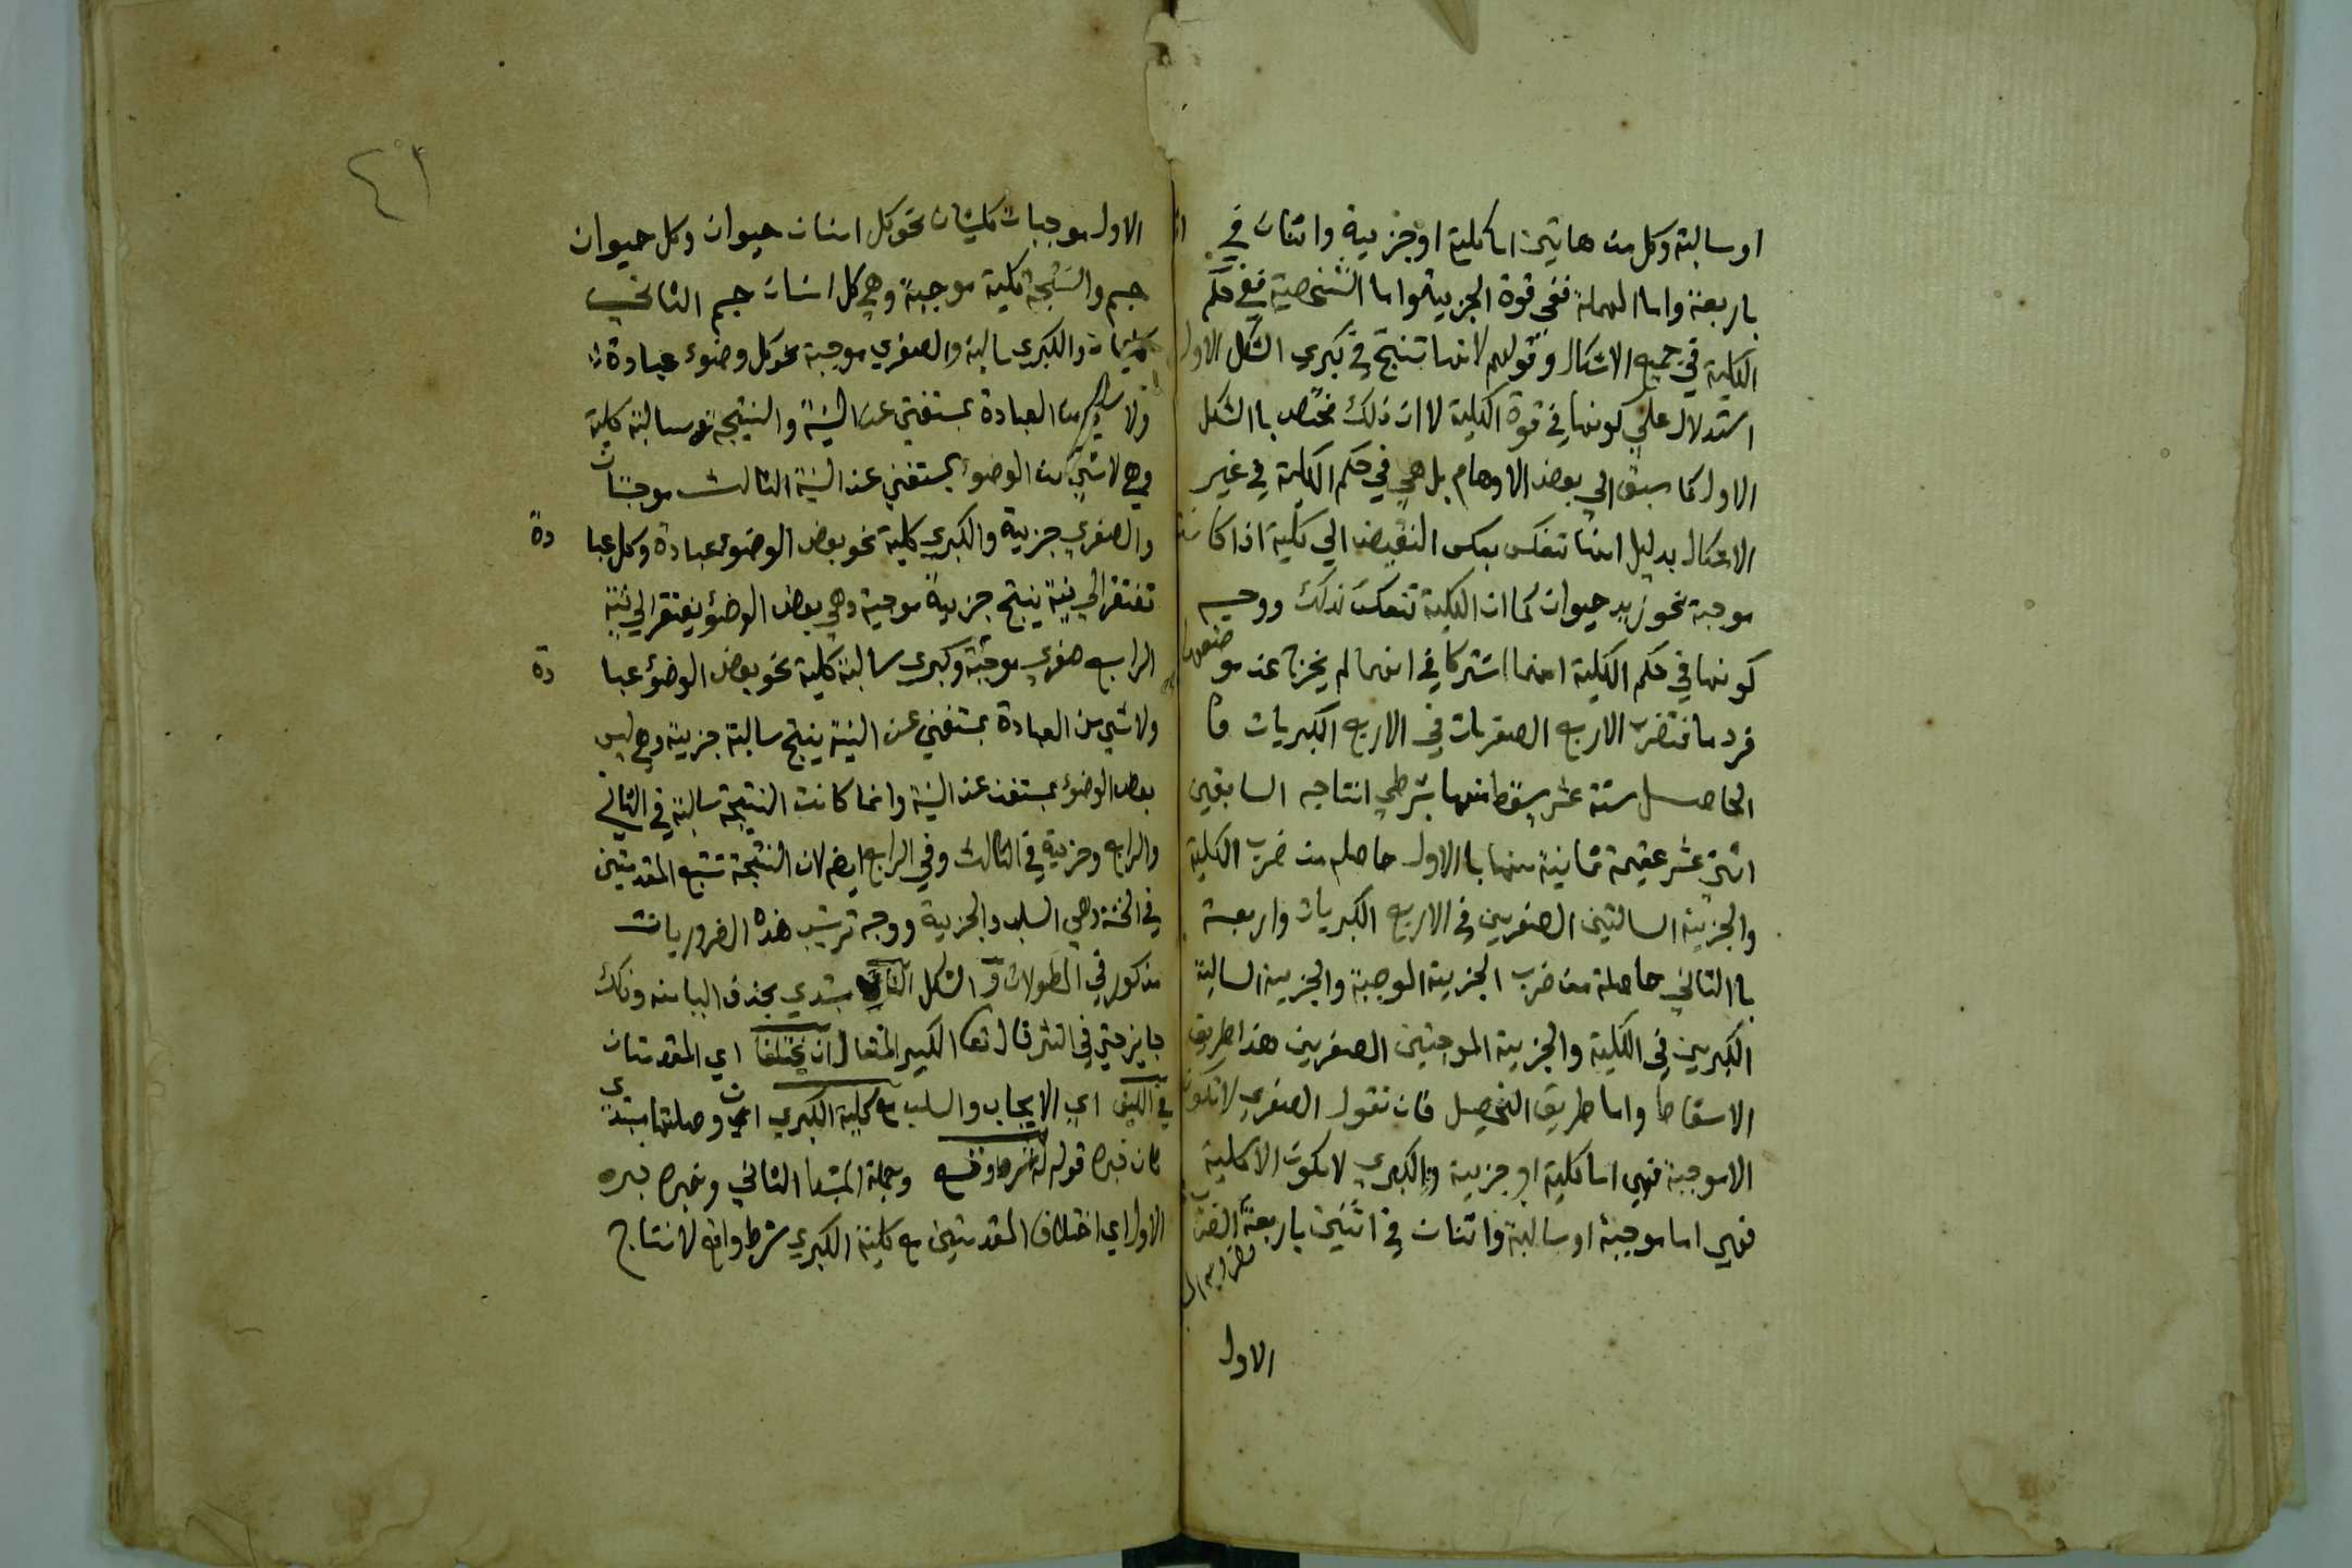 او سالبة وكل من هاتين اما كلية او جزيية واثنان في
باربعة واما المهملة ففي قوة الجزيية واما الشخصية ففي حكم
الكلية في جميع الاشكال وقولهم لانها تنتج في كبرى الشكل الاول
استدلال علي كونها في قوة الكلية لا ان ذلك مختص باالشكل
الاول كما سبق الي بعض الاوهام بل هي في حكم الكلية في غير
الاشكال بدليل انها تنعكس بعكس النقيض الي كلية اذا كانت
موجبة نحو زيد حيوان كما ان الكلية تنعكس كذلك ووجه
كونها في حكم الكلية انهما اشتركا في انهما لم يخرج عن موضوعهما
فرد ما فتضرب الاربع الصغريات في الاربع الكبريات فا
الحاصل ستة عشر يسقط منها بشرطي انتاجه السابقين
اثني عشر عقيمة ثمانية منها باالاول حاصلة من ضرب الكلية
والجزيية السالبتين الصغريين في الاربع الكبريات واربعة
باالثاني حاصلة من ضرب الجزيية الموجبة والجزيية السالبة
الكبريين في الكلية والجزيية الموجبتين الصغريين هذا طريق
الاسقاط واما طريق التحصيل فان تقول الصغري لا تكون
الا موجبة فهي اما كلية او جزيية والكبري لا تكون الا كلية
فهي اما موجبة او سالبة واثنان في اثنين باربعة الضرب
الاول
٤١
الاول موجبات كليتان نحو كل انسان حيوان وكل حيوان
جسم والنتيجة كلية موجبة وهي كل انسان جسم الثاني
كليتان والكبرى سالبة والصغري موجبة نحو كل وضوء عبادة
ولا شيء من العبادة بمستغني عن النية والنتيجة سالبة كلية
وهي لا شي من الوضوء بمستغني عن النية الثالث موجبتان
والصغري جزية والكبري كلية نحو بعض الوضوء عبادة وكل عبادة
تفتقر الي نية ينتج جزيية موجبة وهي بعض الوضوء يفتقر الي نية
الرابع صغري موجبة وكبري سالبة كلية نحو بعض الوضوء عبادة
ولا شي من العبادة بمستغني عن النية ينتج سالبة جزيية وهي ليس
بعض الوضوء بمستغن عن النية وانما كانت النتيجة سالبة في الثاني
والرابع وجزيية في الثالث وفي الرابع ايضا لان النتيجة تتبع المقدمتين
في الخسة وهي السلب والجزيية ووجه ترتيب هذه الضروريات
مذكور في المطولات و الشكل الثاني مبتدي بحذف الياء منه وذلك
جايز حتي في النثر قال تعا الكبير المتعال ان يختلفا اي المقدمتان
في الكيف اي الايجاب والسلب مع كلية الكبري ان وصلتها مبتدى
ثان خبره قوله له شرط وقع وجملة المبتدا الثاني وخبره خبره
الاول اي اختلاف المقدمتين مع كلية الكبري شرط واقع لانتاج